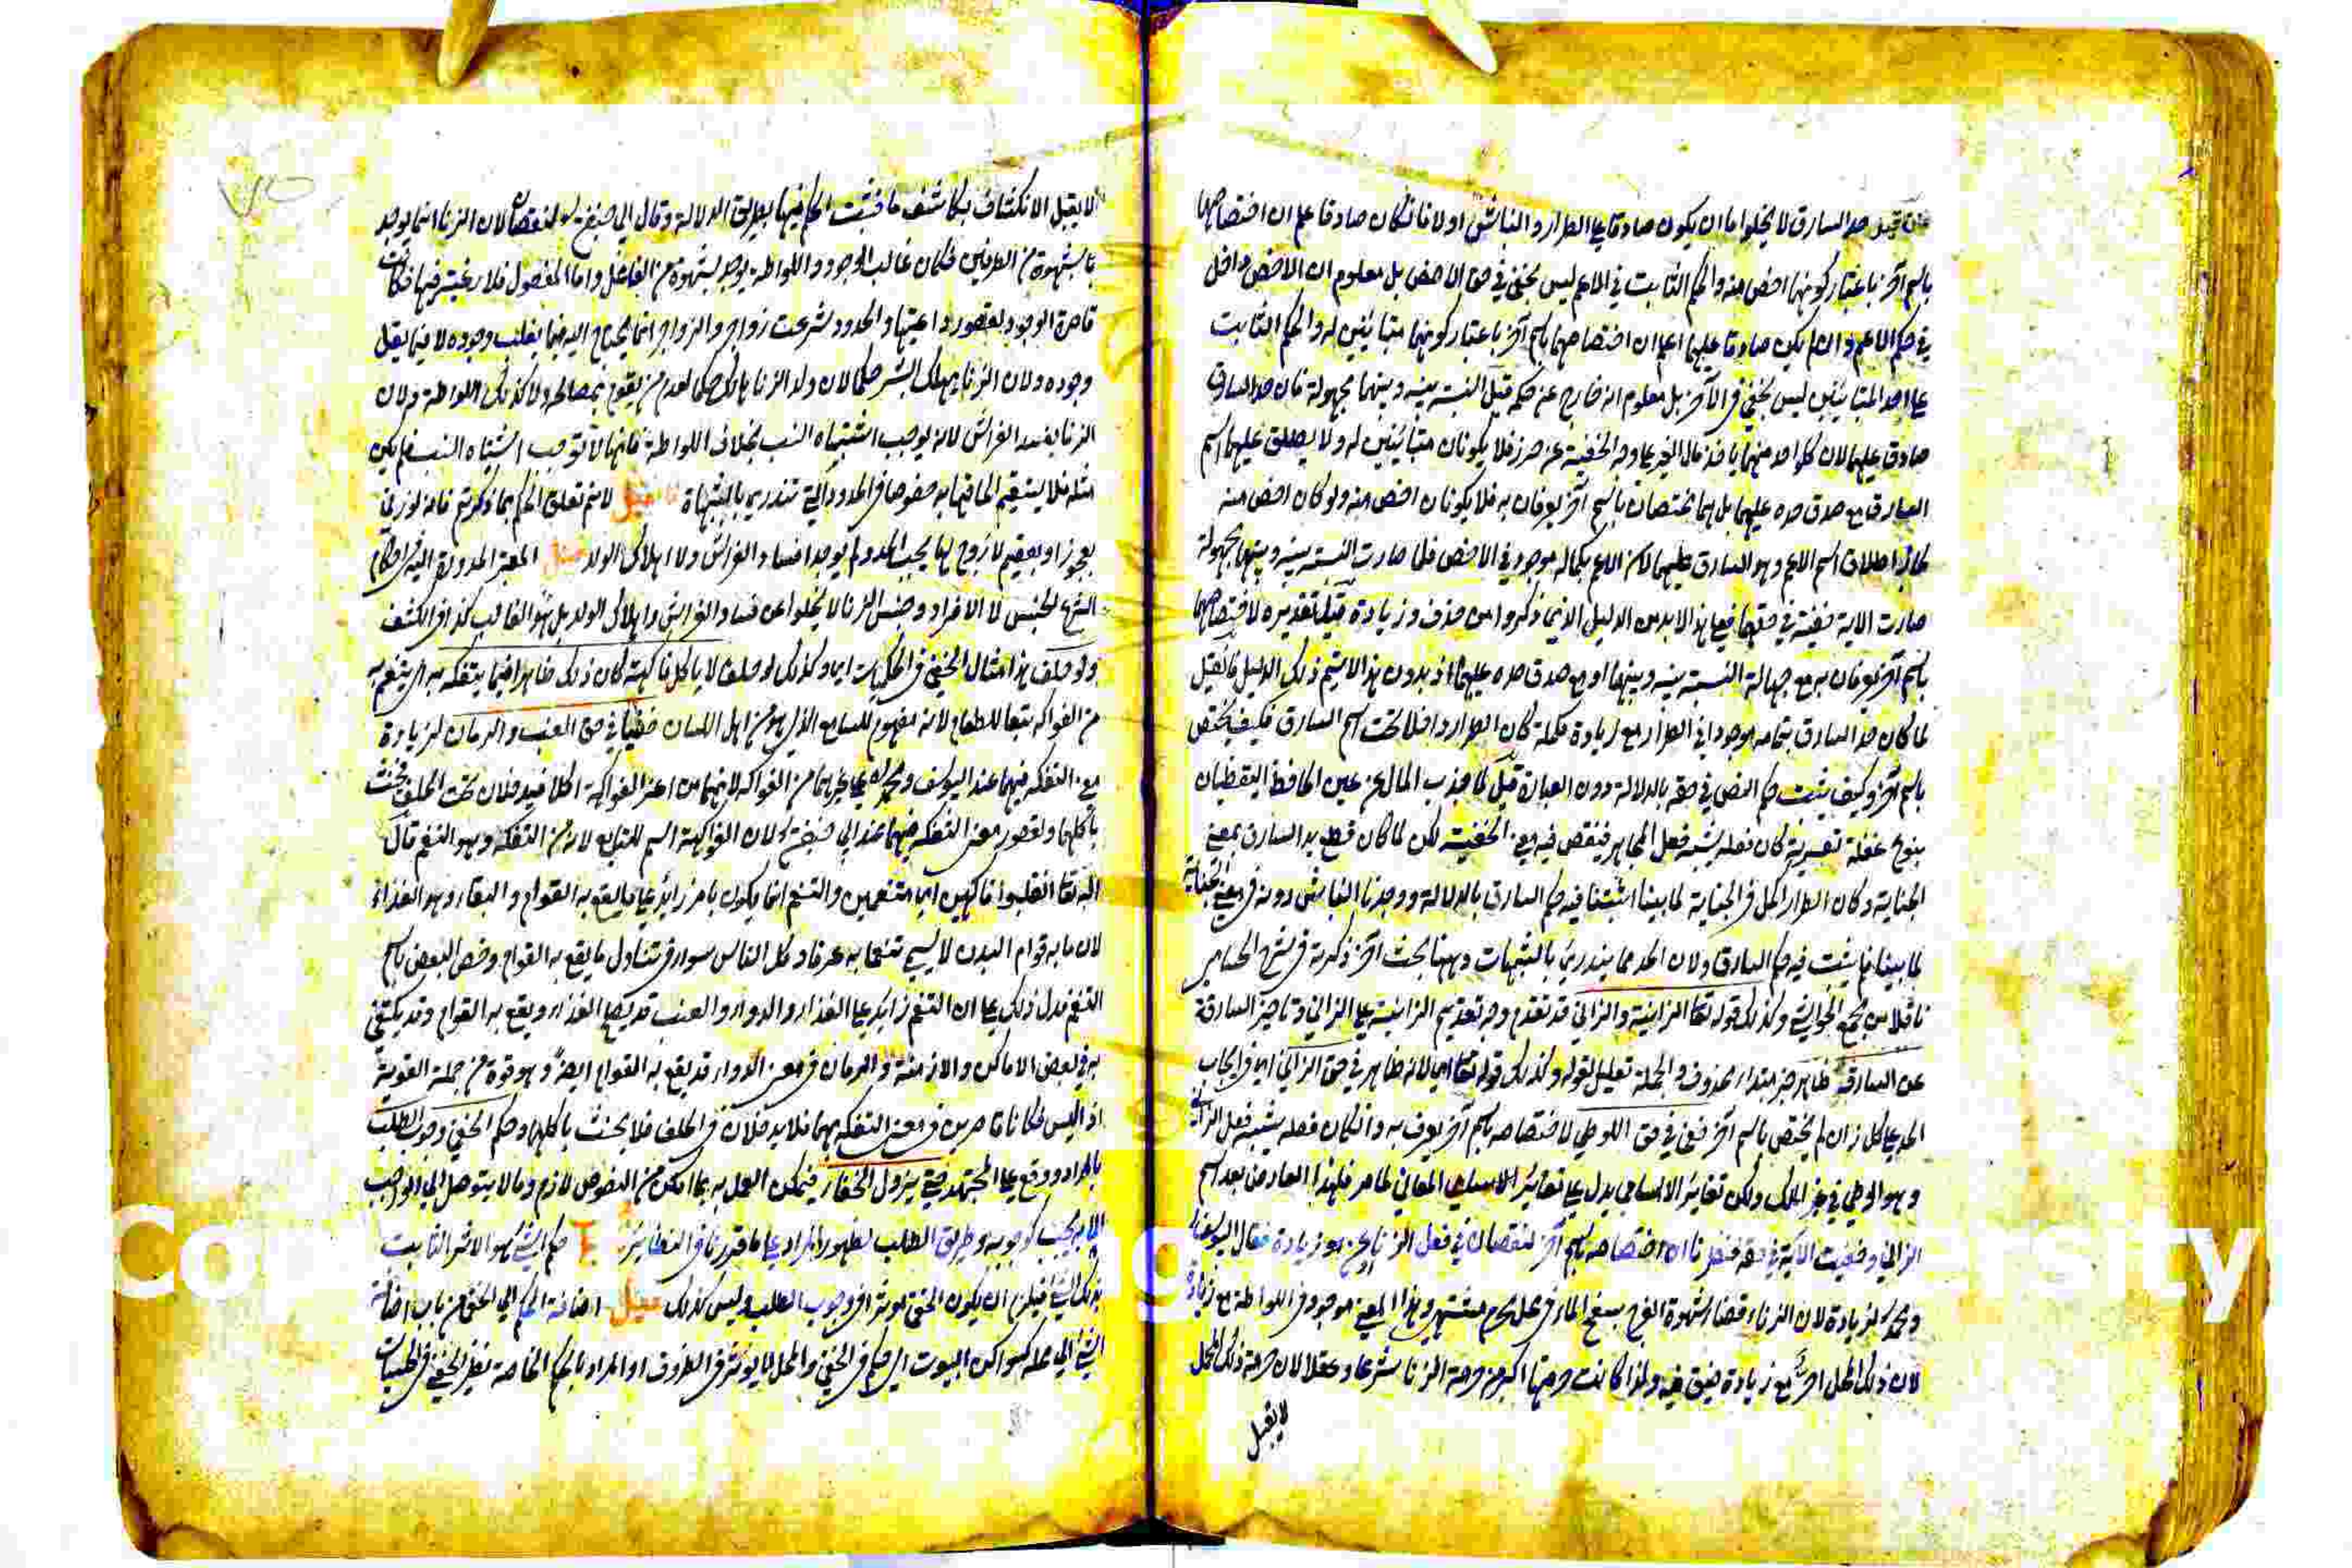 فان قيل حد السارق لا يخلوا اما ان يكون صادقا على الطرار والنباش اولا فان كان صادقا علم ان اختصاصهما
باسم آخر باعتبار كونهما اخص منه والحكم الثابت في الاعم ليس بخفي في حق الاخص بل معلوم ان الاخص داخل
في حكم الاعم وان لم يكن صادقا عليهما علم ان اختصاصهما باسم آخر باعتبار كونهما متباينين له والحكم الثابت
على احد المتباينين ليس بخفي في الآخر بل معلوم انه خارج عن حكمه قيل النسبة بينه وبينهما مجهولة فان حد السارق
صادق عليهما لان كل واحد منهما ياخذ مال الغير على وجه الخفية عن حرز فلا يكونان متباينين له ولا يصدق عليهما اسم
السارق مع صدق حده عليهما بل هما مختصان باسم آخر يعرفان به فلا يكونان اخص منه ولو كان اخص منه
لجاز اطلاق اسم الاعم وهو السارق عليهما لان الاعم بكماله موجود في الاخص فلما صارت النسبة بينه وبينهما مجهولة
صارت الاية خفية في حقهما فعلى هذا لابد من الدليل الذي ذكروا من حذف وزيادة قيل تقديره لاختصاصهما
باسم آخر يعرفان به مع جهالة النسبة بينه وبينهما او مع صدق حده عليهما اذ بدون هذا لا يتم ذلك الدليل فان قيل
لما كان حد السارق بتمامه موجودا في الطرار مع زيادة مكملة كان الطرار داخلا تحت اسم السارق فكيف يختص
باسم آخر وكيف يثبت حكم النص في حقه بالدلالة دون العبارة قيل لما جذب المال عن عين الحافظ اليقظان
بنوع غفلة تعتريه كان فعله يشبه فعل المجاهر فنقص فيه معنى الخفية لكن لما كان قطع يد السارق بمعنى
الجناية وكان الطرار اكمل في الجناية لما بينا اثبتنا فيه حكم السارق بالدلالة ووجدنا النباش دونه في معنى الجناية
لما بينا فلم يثبت فيه حكم السارق ولان الحد مما يندرئ بالشبهات وههنا بحث آخر ذكرته في شرح الحسامي
ناقلا من مجمع الحواشي وكذلك قوله تعالى الزانية والزاني قد تقدم وجه تقديم الزانية على الزاني وتاخير السارقة
عن السارق ظاهر خبر مبتداء محذوف والجملة تعليل لقوله وكذلك قوله تعالى اي لانه ظاهر في حق الزاني اي في ايجاب
الحد على كل زان لم يختص باسم آخر خفي في حق اللوطي لاختصاصه باسم آخر يعرف به وان كان فعله يشبه فعل الزاني
وهو الوطي في غير الملك ولكن تغاير الاسامي يدل على تغاير المعاني لما مر فلهذا العارض بعد اسم
الزاني وخفيت الآية في حقه فنظرنا ان اختصاصه باسم آخر لنقصان في فعل الزنا ام لزيادة فقال ابو يوسف
ومحمد لزيادة لان الزناء قضاء شهوة الفرج بسفح الماء في محل محرم مشتهى وهذا المعنى موجود في اللواطة مع زيادة
لان ذلك المحل احرم مع زيادة ضيق فيه ولهذا كانت حرمتها اكبر من حرمة الزنا شرعا وعقلا لان حرمة ذلك المحل
لا يقبل
لا يقبل الانكشاف بكاشف ما فثبت الحكم فيها بطريق الدلالة وقال ابي حنيفة لنقصان لان الزنا انما يوجد
بالشهوة من الطرفين فكان غالب الوجود واللواطة يوجد بشهوة من الفاعل واما المفعول فلا رغبة فيها فكانت
قاصرة الوجود لقصور داعيتها والحدود شرعت زواجر والزواجر انما يحتاج اليه فيما يغلب وجوده لا فيما يقل
وجوده ولان الزنا مهلك البشر حكما لان ولد الزنا هالك حكما لعدم من يقوم بمصالحه ولا كذلك اللواطة ولان
الزنا يفسد الفراش لانه يوجب اشتباه النسب بخلاف اللواطة فانها لا توجب اشتباه النسب فلم يكن
مثله فلا يستقيم الحاقها به خصوصا في الحدود التي تندرئ بالشبهات فان قيل لا نم تعلق الحكم بما ذكرتم فانه لو زنى
بعجوز او بعقيم لا زوج لها يجب الحد ولم يوجد افساد الفراش ولا اهلاك الولد قيل المعتبر
الشرع الجنس لا الافراد وجنس الزنا لا يخلوا عن فساد الفراش واهلاك الولد بل هو الغالب كذا في الكشف
ولو حلف هذا مثال الخفي في الحكميات اي وكذلك لو حلف لا ياكل فاكهة كان ذلك ظاهرا فيما يتفكه به اي يتنعم به
من الفواكه تبعا للطعام لانه مفهوم للسامع الذي هو من اهل اللسان خفيا في حق العنب والرمان لزيادة
معنى التفكه فيهما عند ابي يوسف ومحمد على غيرهما من الفواكه لانهما من اعز الفواكه اكلا فيدخلان تحت الحلف فيحنث
باكلهما ولقصور معنى التفكه فيهما عند ابي حنيفة لان الفواكهة اسم للتابع لانه من التفكه وهو التنعم قال
الله تعالى انقلبوا فاكهين اي متنعمين والتنعم انما يكون بامر زائد على ما يقع به القوام والبقاء وهو الغذاء
لان ما به قوام البدن لا يسمى تنعما به عرفا وكل الناس سواء في تناول ما يقع به القوام وخص البعض باسم
التنعم فدل ذلك على ان التنعم زايد على الغذاء والدواء والعنب قد يصلح للغذاء ويقع به القوام وقد يكتفي
به في بعض الاماكن والازمنة والرمان في معنى الدواء قد يقع به القوام ايضا وهو قوة من جملة القوية
اذا اليبس فكانا قاصرين في معنى التفكه بهما فلا يدخلان في الحلف فلا يحنث باكلهما وحكم الخفي وجوب الطلب
بالمراد ووقع على المجتهد حتى يزول الخفاء فيمكن العمل به بما امكن من النصوص لازم وما لا يتوصل الى الواجب
الا به يجب كوجوبه وطريق الطلب لظهور المراد على ما قررنا في النظائر حكم الشئ هو الاثر الثابت
بذلك الشئ فيلزم ان يكون الخفي موثرا في وجوب الطلب وليس كذلك قيل اضافة الحكم الى الخفي من باب اضافة
الشئ الى محله كسواكن البيوت اي حكم في الخفي والمحل لا يوثر في الظروف او المراد بالحكم الخاصة نظير الخفي في الحسيات